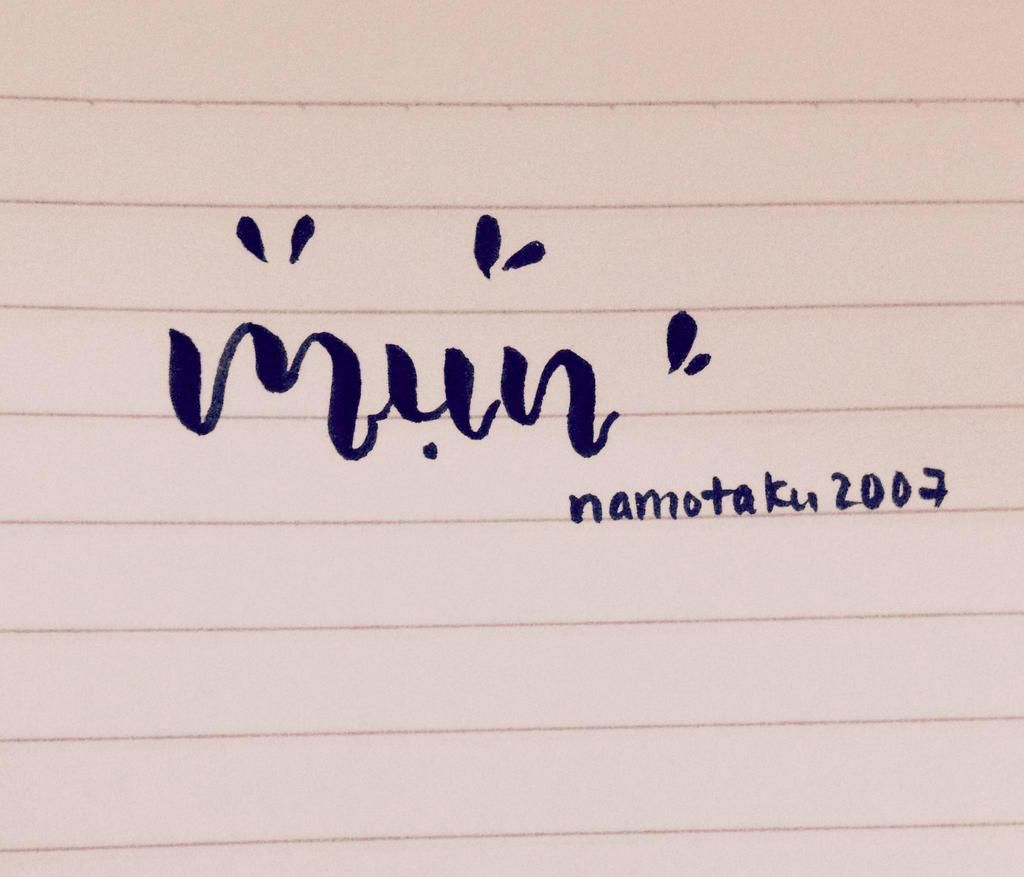 mụn
namotaku2007